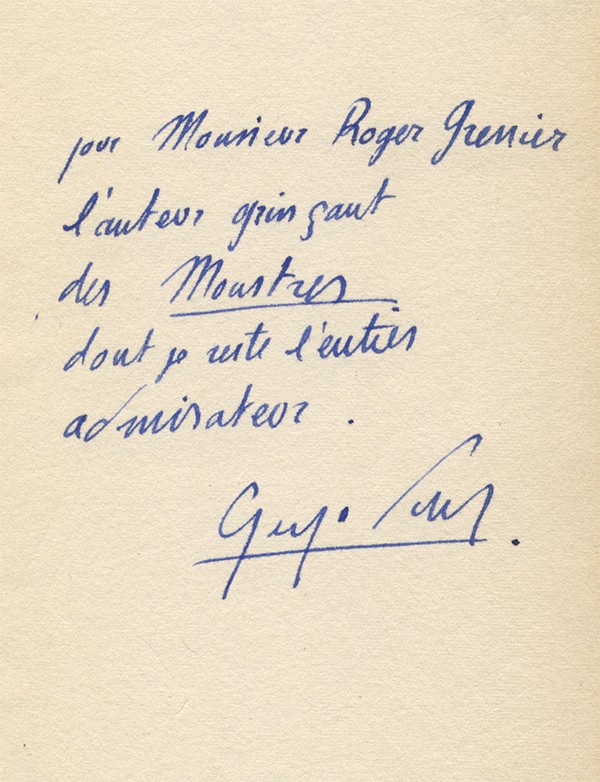 pour Monsieur Roger Grenier
l'auteur grinçant
des Monstres
dont je reste l'entier
admirateur.